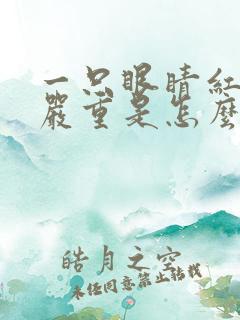 一只眼睛红
严重是怎么
皓月之空
未经同意禁止转载